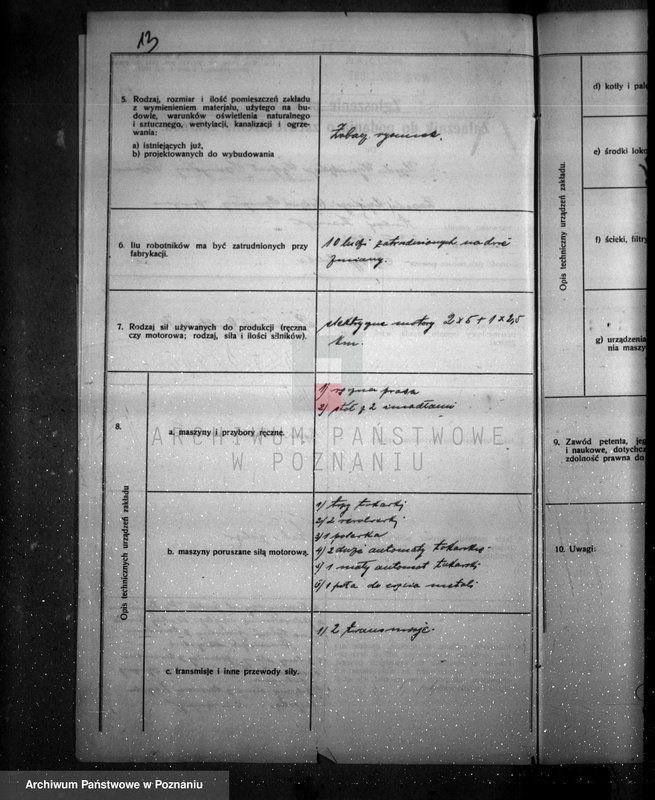 13
5. Rodzaj, rozmiar i ilość pomieszczeń zakładu
z wymienieniem materjału, użytego na bu-
dowie, warunków oświetlenia naturalnego
i sztucznego, wentylacji, kanalizacji i ogrze-
wania:
a) istniejących już,
b) projektowanych do wybudowania
Zobacz rysunek.
6. Ilu robotników ma być zatrudnionych przy
fabrykacji.
10 ludzi zatrudnionych na dwie
zmiany.
7. Rodzaj sił używanych do produkcji (ręczna
czy motorowa; rodzaj, siła i ilości silników).
elektryczne motory 2 x 5 + 1 x 2,5
km.
8.
Opis technicznych urządzeń zakładu
a. maszyny i przybory ręczne.
1) ręczna prasa
2) stół z 2 imadłami
b. maszyny poruszane siłą motorową.
1) trzy tokarki
2) 2 rewolwerki
3) 1 polerka
4) 2 duże automaty tokarskie
5) 1 mały automat tokarski
6) 1 piła do cięcia metali
c. transmisje i inne przewody siły.
1) 2 transmisje.
d) kotły i pale
e) środki loko
f) ścieki, filtry
g) urządzenia
nia maszy
Opis techniczny urządzeń zakładu.
9. Zawód petenta, jeg
i naukowe, dotychcz
zdolność prawna do
10. Uwagi:
ARCHIWUM PAŃSTWOWE
W POZNANIU
Archiwum Państwowe w Poznaniu